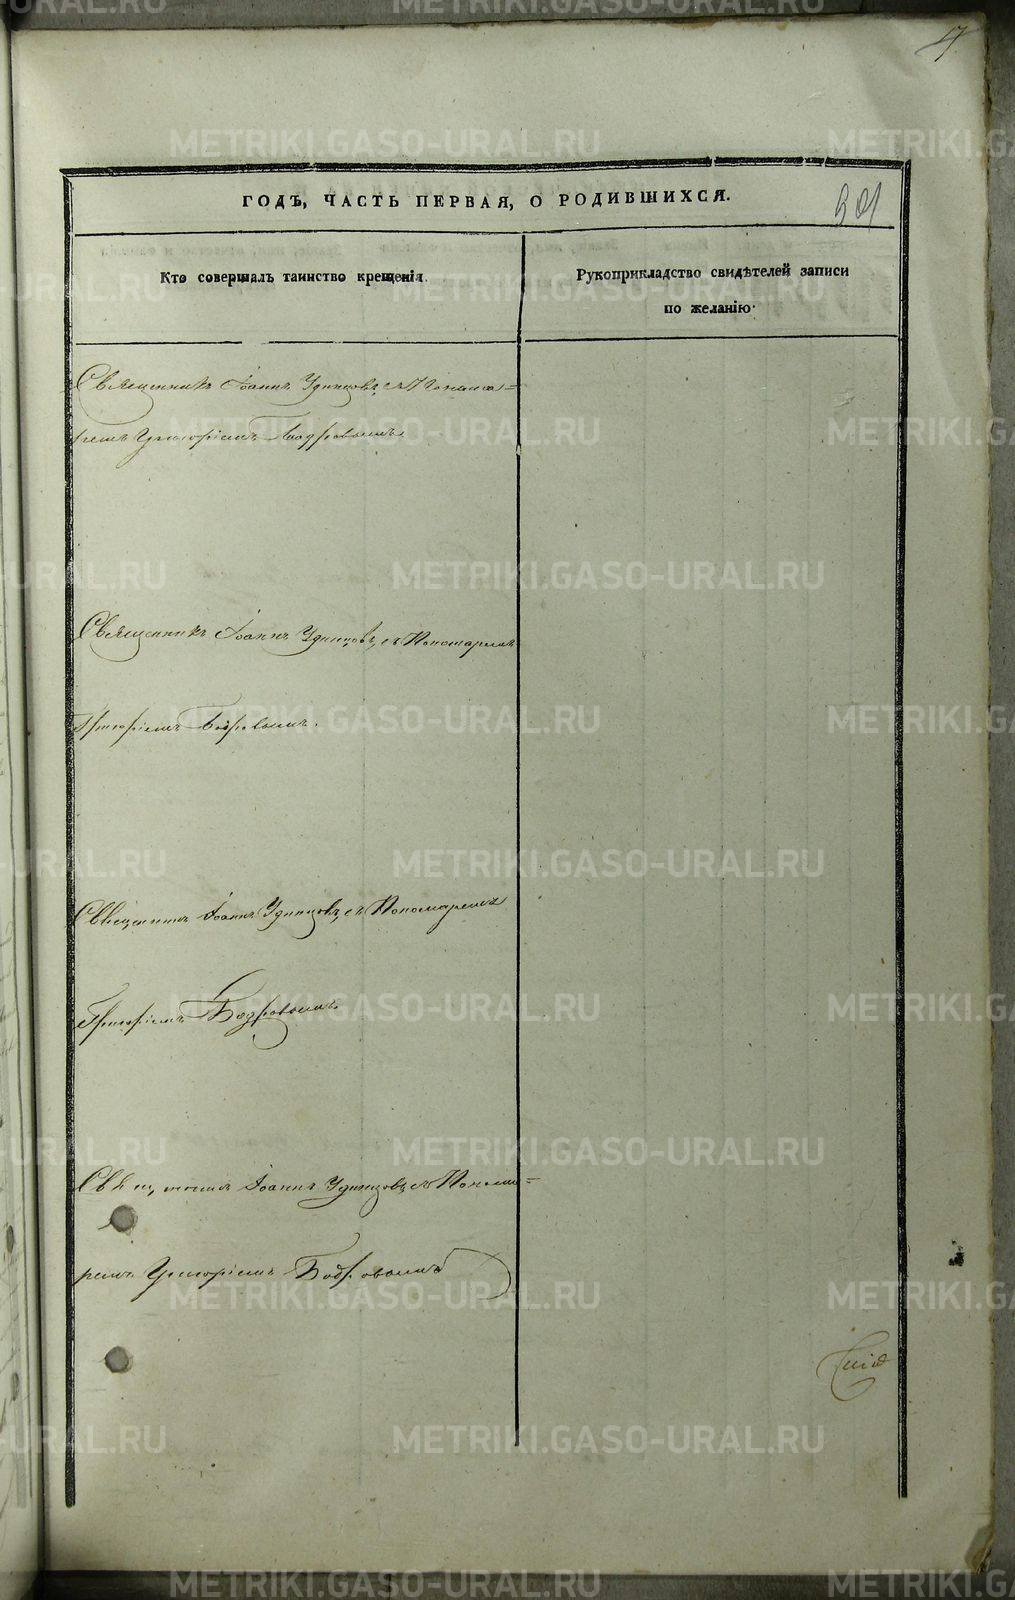 47.
ГОДЪ, ЧАСТЬ ПЕРВАЯ, О РОДИВШИХСЯ.
301
Кто совершалъ таинство крещенія.
Рукоприкладство свидѣтелей записи
по желанію.
Священникъ Іоаннъ Удинцовъ, съ Понома=
ремъ Григоріемъ Бодровымъ.
Священникъ Іоаннъ Удинцовъ, съ Пономаремъ
Григоріемъ Бодровымъ.
Священникъ Іоаннъ Удинцовъ, съ Пономаремъ
Григоріемъ Бодровымъ.
Священникъ Іоаннъ Удинцовъ, съ Понома=
ремъ Григоріемъ Бодровымъ
METRIKI.GASO-URAL.RU